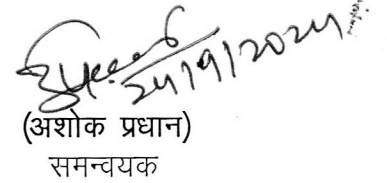 24/9/2024
(अशोक प्रधान)
समन्वयक